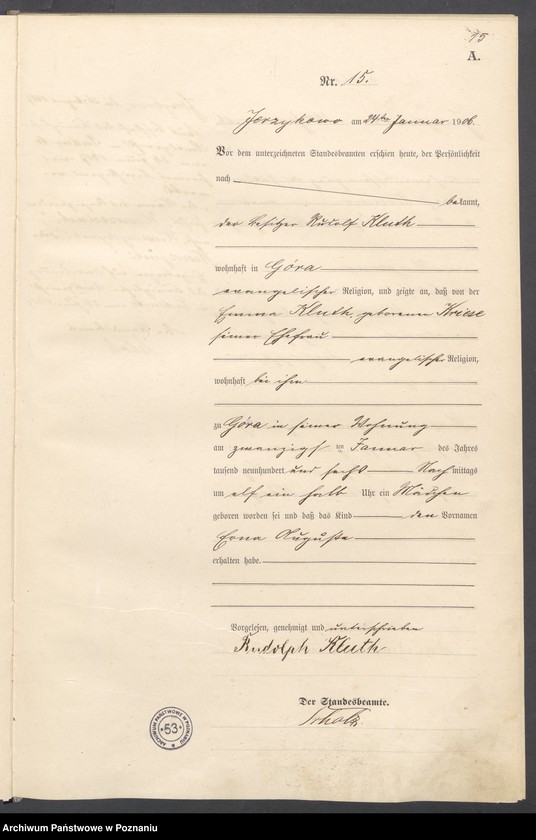 15
A.
Nr. 15.
Jerzykowo am 24ten Januar 1906.
Vor dem unterzeichneten Standesbeamten erschien heute, der Persönlichkeit
nach
bekannt,
der Besitzer Rudolf Kluth
wohnhaft in Góra
evangelischer Religion, und zeigte an, daß von der
Emma Kluth, geborenen Kriese
seiner Ehefrau
evangelischer Religion,
wohnhaft bei ihm
zu Góra in seiner Wohnung
am zwanzigsten Januar des Jahres
tausend neunhundert und sechs Nachmittags
um elf ein halb Uhr ein Mädchen
geboren worden sei und daß das Kind den Vornamen
Erna Auguste
erhalten habe.
Vorgelesen, genehmigt und unterschrieben
Rudolph Kluth
Der Standesbeamte.
ARCHIWUM PAŃSTWOWE W POZNANIU
53
Archiwum Państwowe w Poznaniu